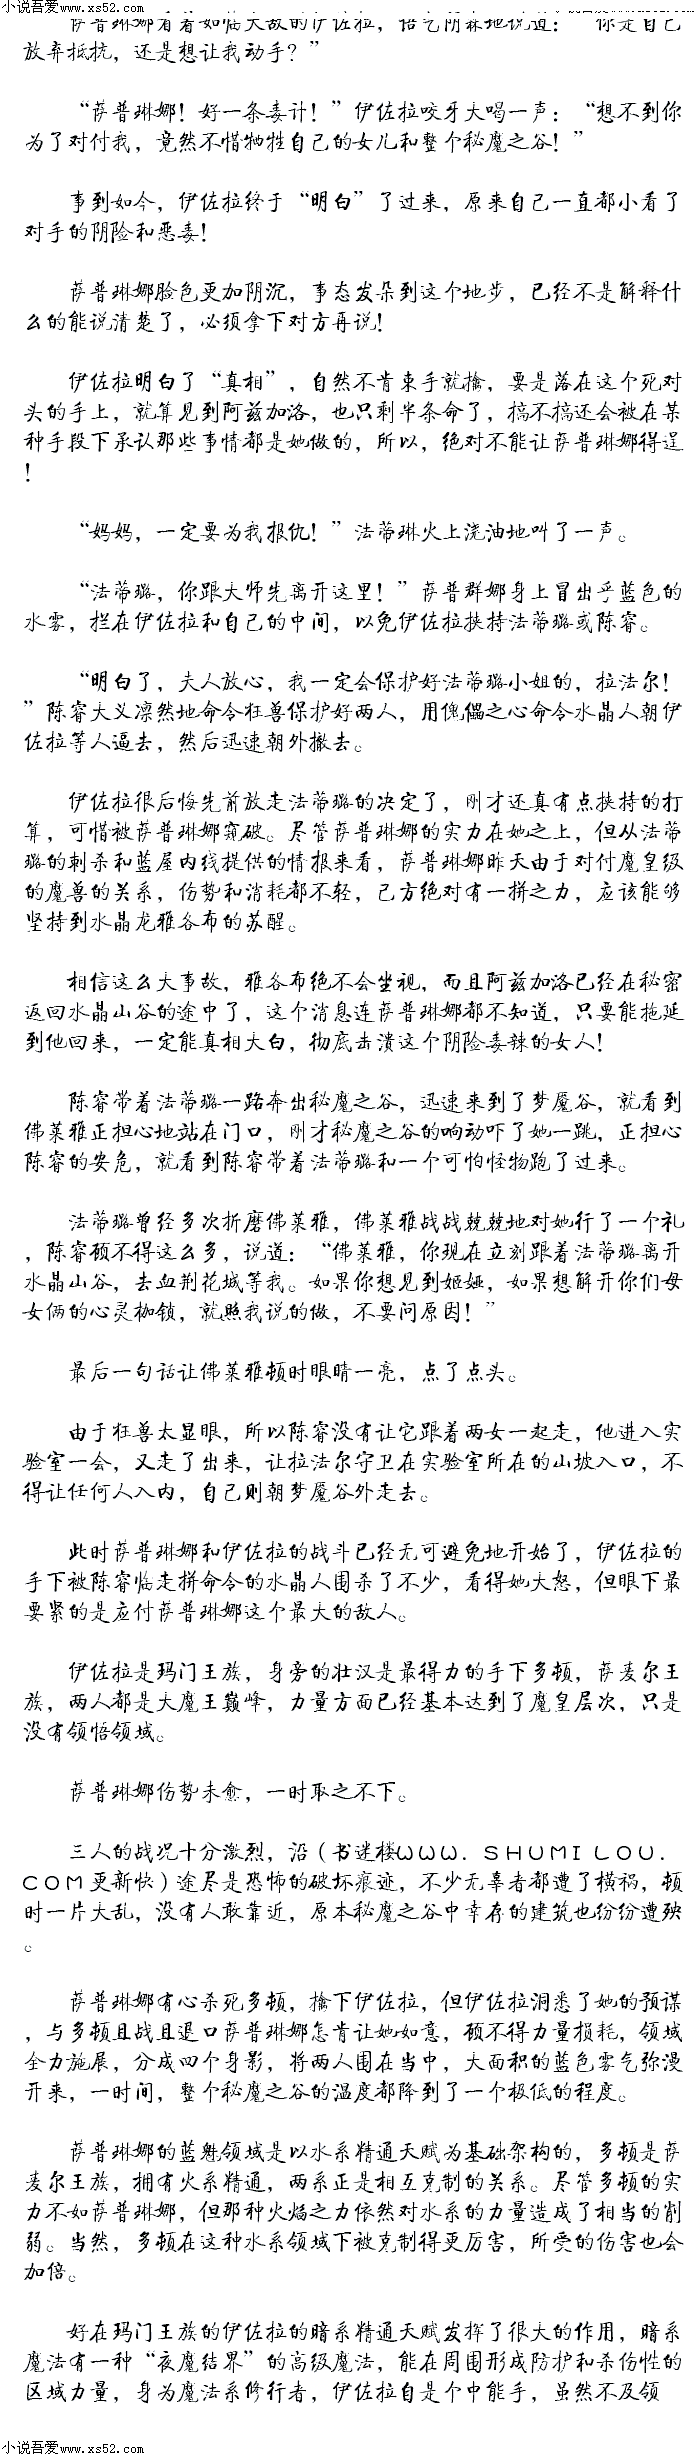 小说吾爱www.xs52.com
萨普琳娜看着如临大敌的伊佐拉，语气阴森地说道：“你是自己
放弃抵抗，还是想让我动手？”
“萨普琳娜！好一条毒计！”伊佐拉咬牙大喝一声：“想不到你
为了对付我，竟然不惜牺牲自己的女儿和整个秘魔之谷！”
事到如今，伊佐拉终于“明白”了过来，原来自己一直都小看了
对手的阴险和恶毒！
萨普琳娜脸色更加阴沉，事态发朵到这个地步，已经不是解释什
么的能说清楚了，必须拿下对方再说！
伊佐拉明白了“真相”，自然不肯束手就擒，要是落在这个死对
头的手上，就算见到阿兹加洛，也只剩半条命了，搞不搞还会被在某
种手段下承认那些事情都是她做的，所以，绝对不能让萨普琳娜得逞
！
“妈妈，一定要为我报仇！”法蒂琳火上浇油地叫了一声。
“法蒂璐，你跟大师先离开这里！”萨普群娜身上冒出乎蓝色的
水雾，拦在伊佐拉和自己的中间，以免伊佐拉挟持法蒂璐或陈睿。
“明白了，夫人放心，我一定会保护好法蒂璐小姐的，拉法尔！
”陈睿大义凛然地命令狂兽保护好两人，用傀儡之心命令水晶人朝伊
佐拉等人逼去，然后迅速朝外撤去。
伊佐拉很后悔先前放走法蒂璐的决定了，刚才还真有点挟持的打
算，可惜被萨普琳娜窥破。尽管萨普琳娜的实力在她之上，但从法蒂
璐的刺杀和蓝屋内线提供的情报来看，萨普琳娜昨天由于对付魔皇级
的魔兽的关系，伤势和消耗都不轻，己方绝对有一拼之力，应该能够
坚持到水晶龙雅各布的苏醒。
相信这么大事故，雅各布绝不会坐视，而且阿兹加洛已经在秘密
返回水晶山谷的途中了，这个消息连萨普琳娜都不知道，只要能拖延
到他回来，一定能真相大白，彻底击溃这个阴险毒辣的女人！
陈睿带着法蒂璐一路奔出秘魔之谷，迅速来到了梦魇谷，就看到
佛莱雅正担心地站在门口，刚才秘魔之谷的响动吓了她一跳，正担心
陈睿的安危，就看到陈睿带着法蒂璐和一个可怕怪物跑了过来。
法蒂璐曾经多次折磨佛莱雅，佛莱雅战战兢兢地对她行了一个礼
，陈睿顾不得这么多，说道：“佛莱雅，你现在立刻跟着法蒂璐离开
水晶山谷，去血荆花城等我。如果你想见到姬娅，如果想解开你们母
女俩的心灵枷锁，就照我说的做，不要问原因！”
最后一句话让佛莱雅顿时眼睛一亮，点了点头。
由于狂兽太显眼，所以陈睿没有让它跟着两女一起走，他进入实
验室一会，又走了出来，让拉法尔守卫在实验室所在的山坡入口，不
得让任何人入内，自己则朝梦魇谷外走去。
此时萨普琳娜和伊佐拉的战斗已经无可避免地开始了，伊佐拉的
手下被陈睿临走拼命令的水晶人围杀了不少，看得她大怒，但眼下最
要紧的是应付萨普琳娜这个最大的敌人。
伊佐拉是玛门王族，身旁的壮汉是最得力的手下多顿，萨麦尔王
族，两人都是大魔王巅峰，力量方面已经基本达到了魔皇层次，只是
没有领悟领域。
萨普琳娜伤势未愈，一时取之不下。
三人的战况十分激烈，沿（书迷楼ＷＷＷ．ＳＨＵＭＩＬＯＵ．
ＣＯＭ更新快）途尽是恐怖的破坏痕迹，不少无辜者都遭了横祸，顿
时一片大乱，没有人敢靠近，原本秘魔之谷中幸存的建筑也纷纷遭殃
。
萨普琳娜有心杀死多顿，擒下伊佐拉，但伊佐拉洞悉了她的预谋
，与多顿且战且退口萨普琳娜怎肯让她如意，顾不得力量损耗，领域
全力施展，分成四个身影，将两人围在当中，大面积的蓝色雾气弥漫
开来，一时间，整个秘魔之谷的温度都降到了一个极低的程度。
萨普琳娜的蓝魅领域是以水系精通天赋为基础架构的，多顿是萨
麦尔王族，拥有火系精通，两系正是相互克制的关系。尽管多顿的实
力不如萨普琳娜，但那种火焰之力依然对水系的力量造成了相当的削
弱。当然，多顿在这种水系领域下被克制得更厉害，所受的伤害也会
加倍。
好在玛门王族的伊佐拉的暗系精通天赋发挥了很大的作用，暗系
魔法有一种“夜魔结界”的高级魔法，能在周围形成防护和杀伤性的
区域力量，身为魔法系修行者，伊佐拉自是个中能手，虽然不及领
小说吾爱www.xs52.com